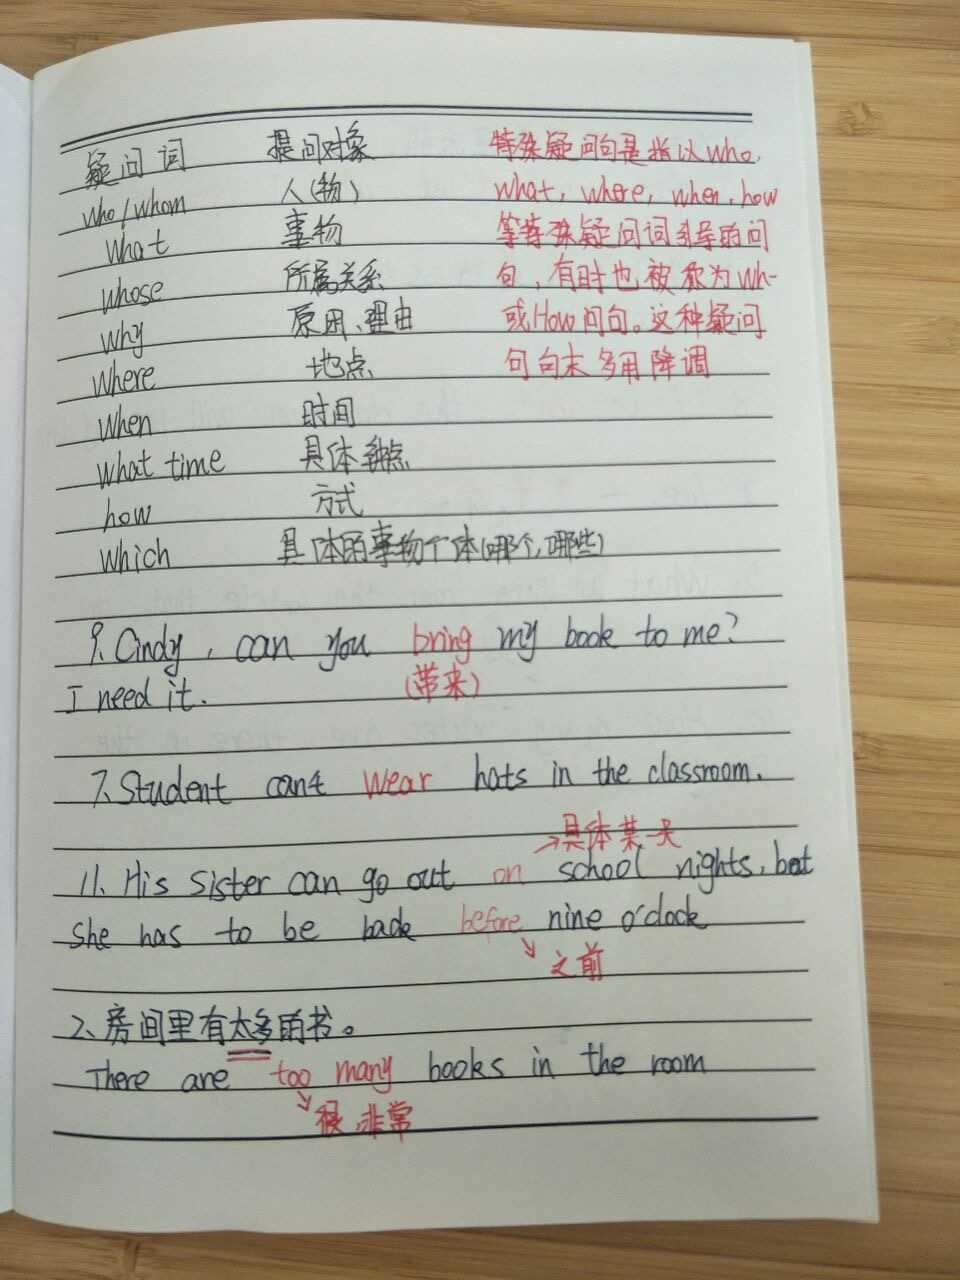 疑问词 提问对象 特殊疑问句是指以who,
who/whom 人(物) what, where, when, how
what 事物 等特殊疑问词引导的问
whose 所属关系 句,有时也被称为wh-
why 原因、理由 或How问句。这种疑问
where 地点 句句末多用降调
when 时间
what time 具体钟点
how 方式
which 具体的事物个体(哪个,哪些)
9. Cindy, can you bring my book to me?
I need it. (带来)
7. Student can't wear hats in the classroom.
→具体某一天
11. His sister can go out on school nights, but
she has to be back before nine o'clock
↘之前
2、房间里有太多的书。
There are too many books in the room
↘很,非常